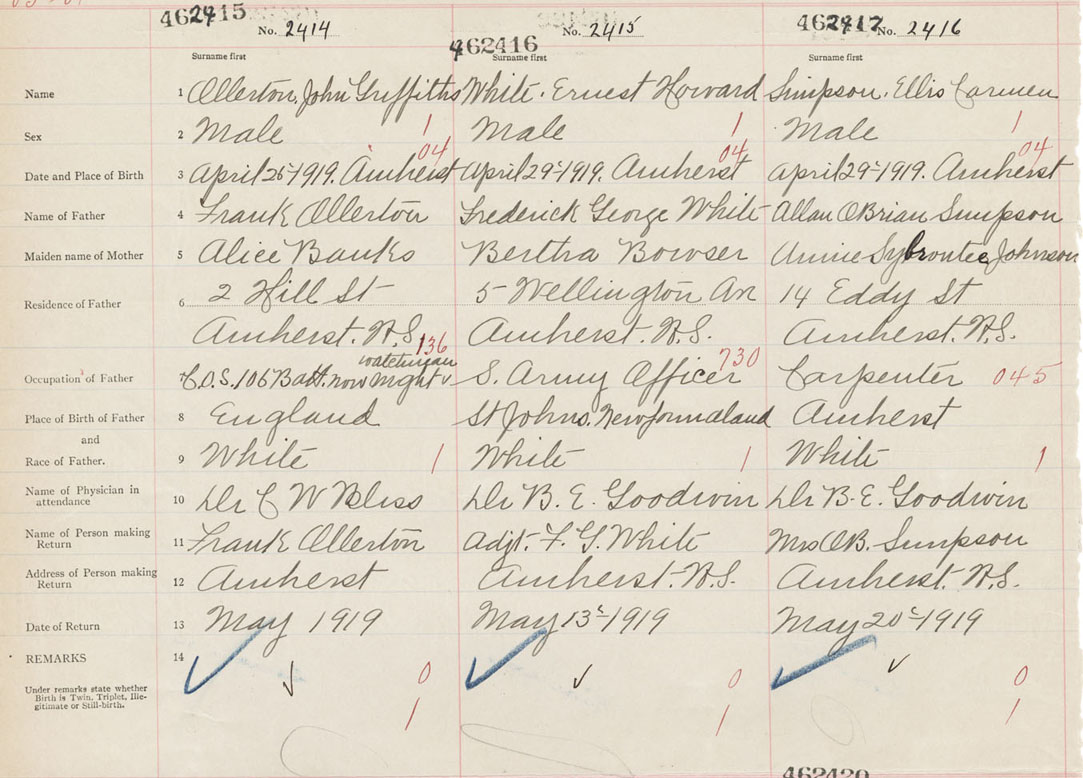 462415 462416 462417
No. 2414 No. 2415 No. 2416
Surname first Surname first Surname first
Name 1 Ollerton, John Griffiths White. Ernest Howard Simpson. Ellis Carmen
Sex 2 Male 1 Male 1 Male 1
04 04 04
Date and Place of Birth 3 April 25-1919. Amherst April 29-1919. Amherst April 29-1919. Amherst
Name of Father 4 Frank Ollerton Frederick George White Allan OBrian Simpson
Maiden name of Mother 5 Alice Banks Bertha Bowser Annie Johnson
Residence of Father 6 2 Hill St 5 Wellington Av 14 Eddy St
Amherst. N.S. Amherst. N.S. Amherst. N.S.
136 730
watchman
Occupation of Father 7 106 Batt. now night S. Army Officer Carpenter 045
Place of Birth of Father 8 England St Johns. Newfoundland Amherst
and
Race of Father. 9 White 1 White 1 White 1
Name of Physician in
attendance 10 Dr C W Bliss Dr B. E. Goodwin Dr B. E. Goodwin
Name of Person making
Return 11 Frank Ollerton Adjt. F. G. White Mrs OB. Simpson
Address of Person making
Return 12 Amherst Amherst. N.S. Amherst. N.S.
Date of Return 13 May 1919 May 13-1919 May 20-1919
REMARKS 14
Under remarks state whether
Birth is Twin, Triplet, Ille-
gitimate or Still-birth.
0 0 0
1 1 1
462420